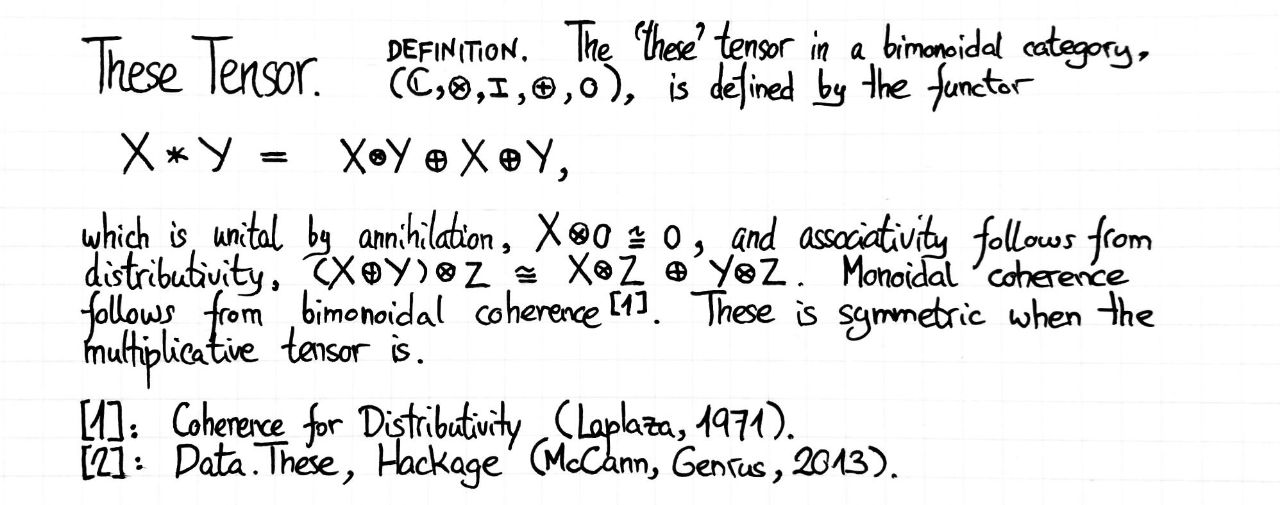 These Tensor.
DEFINITION. The 'these' tensor in a bimonoidal category,
(ℂ,⊗,I,⊕,0), is defined by the functor
X * Y = X⊗Y ⊕ X ⊕ Y,
which is unital by annihilation, X⊗0 ≅ 0, and associativity follows from
distributivity, (X⊕Y)⊗Z ≅ X⊗Z ⊕ Y⊗Z. Monoidal coherence
follows from bimonoidal coherence [1]. These is symmetric when the
multiplicative tensor is.
[1]: Coherence for Distributivity (Laplaza, 1971).
[2]: Data.These, Hackage (McCann, Genrus, 2013).